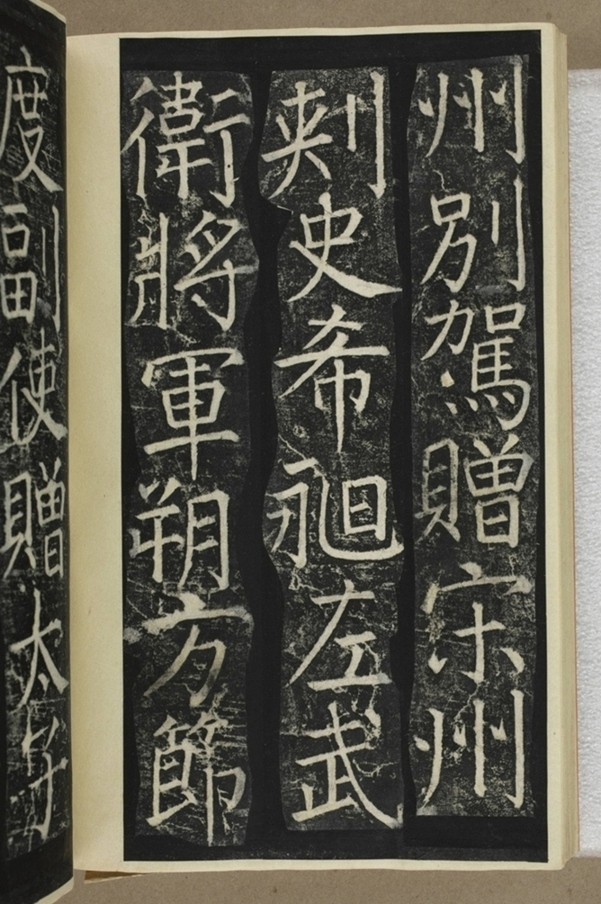 州別駕贈宋州
刾史希左武
衛將軍朔方節
度副使贈太